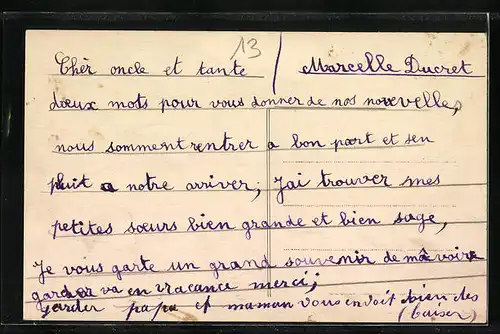 13
Chèr oncle et tante / Marcelle Ducret
doeux mots pour vous donner de nos nouvelles,
nous somment rentrer a bon port et sen
pluit a notre arriver, J'ai trouver mes
petites sœurs bien grande et bien sage,
Je vous garte un grand souvenir de mâ voire
garder va en vracance merci;
Garder papa et maman vous envoit bien des
(baiser)